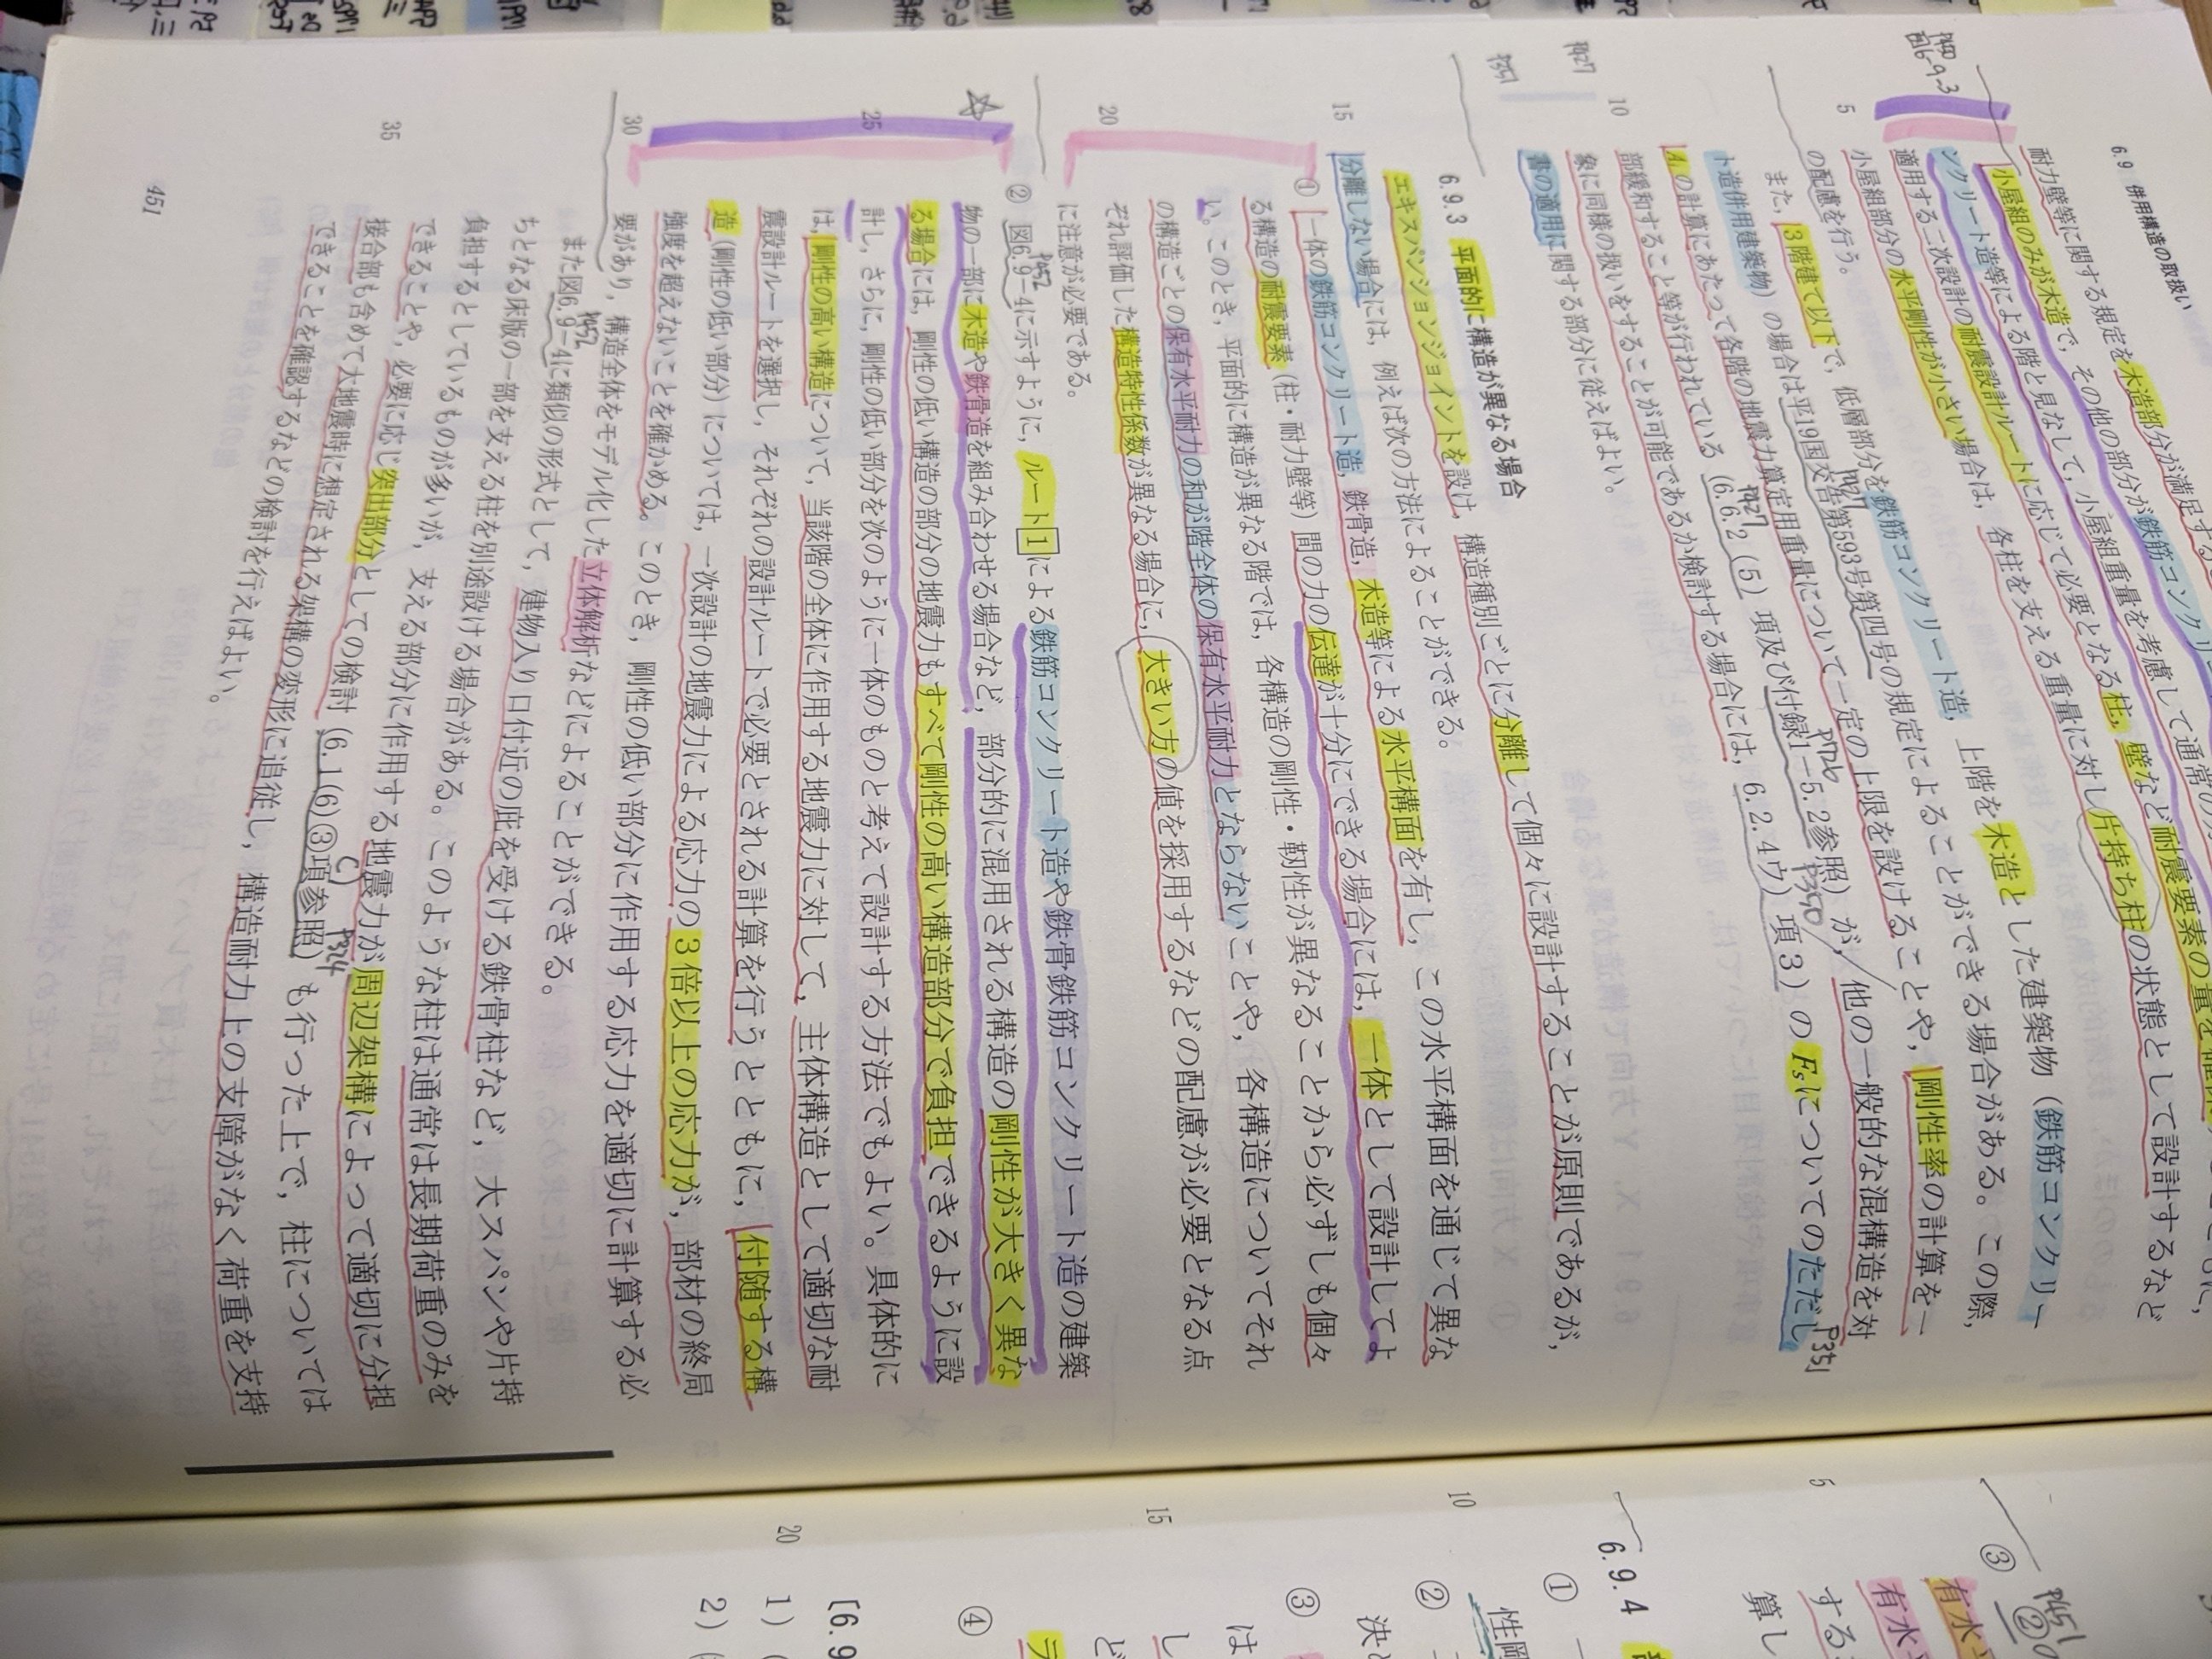 6.9 併用構造の取扱い
耐力壁等に関する規定を木造部分が満足する
小屋組のみが木造で，その他の部分が鉄筋コンクリ
ンクリート造等による階と見なして，小屋組重量を考慮して通常の
適用する二次設計の耐震設計ルートに応じて必要となる柱，壁など耐震要素の量を確
小屋組部分の水平剛性が小さい場合は，各柱を支える重量に対し片持ち柱の状態として設計するなど
の配慮を行う。
また，3階建て以下で，低層部分を鉄筋コンクリート造，上階を木造とした建築物（鉄筋コンクリー
ト造併用建築物）の場合は平19国交告第593号第四号の規定によることができる場合がある。この際，
Aiの計算にあたって各階の地震力算定用重量について一定の上限を設けることや，剛性率の計算を一
部緩和すること等が行われている（6.6.2（5）項及び付録1-5.2参照）が，他の一般的な混構造を対
象に同様の扱いをすることが可能であるか検討する場合には，6.2.4ウ）項3）のFsについてのただし
書の適用に関する部分に従えばよい。
6.9.3 平面的に構造が異なる場合
エキスパンションジョイントを設け，構造種別ごとに分離して個々に設計することが原則であるが，
分離しない場合には，例えば次の方法によることができる。
① 一体の鉄筋コンクリート造，鉄骨造，木造等による水平構面を有し，この水平構面を通じて異な
る構造の耐震要素（柱・耐力壁等）間の力の伝達が十分にできる場合には，一体として設計してよ
い。このとき，平面的に構造が異なる階では，各構造の剛性・靭性が異なることから必ずしも個々
の構造ごとの保有水平耐力の和が階全体の保有水平耐力とならないことや，各構造についてそれ
ぞれ評価した構造特性係数が異なる場合に，大きい方の値を採用するなどの配慮が必要となる点
に注意が必要である。
② 図6.9-4に示すように，ルート1による鉄筋コンクリート造や鉄骨鉄筋コンクリート造の建築
物の一部に木造や鉄骨造を組み合わせる場合など，部分的に混用される構造の剛性が大きく異な
る場合には，剛性の低い構造の部分の地震力もすべて剛性の高い構造部分で負担できるように設
計し，さらに，剛性の低い部分を次のように一体のものと考えて設計する方法でもよい。具体的に
は，剛性の高い構造について，当該階の全体に作用する地震力に対して，主体構造として適切な耐
震設計ルートを選択し，それぞれの設計ルートで必要とされる計算を行うとともに，付随する構
造（剛性の低い部分）については，一次設計の地震力による応力の3倍以上の応力が，部材の終局
強度を超えないことを確かめる。このとき，剛性の低い部分に作用する応力を適切に計算する必
要があり，構造全体をモデル化した立体解析などによることができる。
また図6.9-4に類似の形式として，建物入り口付近の庇を受ける鉄骨柱など，大スパンや片持
ちとなる床版の一部を支える柱を別途設ける場合がある。このような柱は通常は長期荷重のみを
負担するとしているものが多いが，支える部分に作用する地震力が周辺架構によって適切に分担
できることや，必要に応じ突出部分としての検討（6.1(6)③項参照）も行った上で，柱については
接合部も含めて大地震時に想定される架構の変形に追従し，構造耐力上の支障がなく荷重を支持
できることを確認するなどの検討を行えばよい。
5
10
15
20
25
30
35
451
図6-9-3
P427
P351
P427
P726
P350
P351
P452
P452
P324
P451
②
5
10
15
20
③
有水
有水
する
算し
6.9.4
①
②
性
決
③
は
し
ど
④
〔6.9
1）
2）